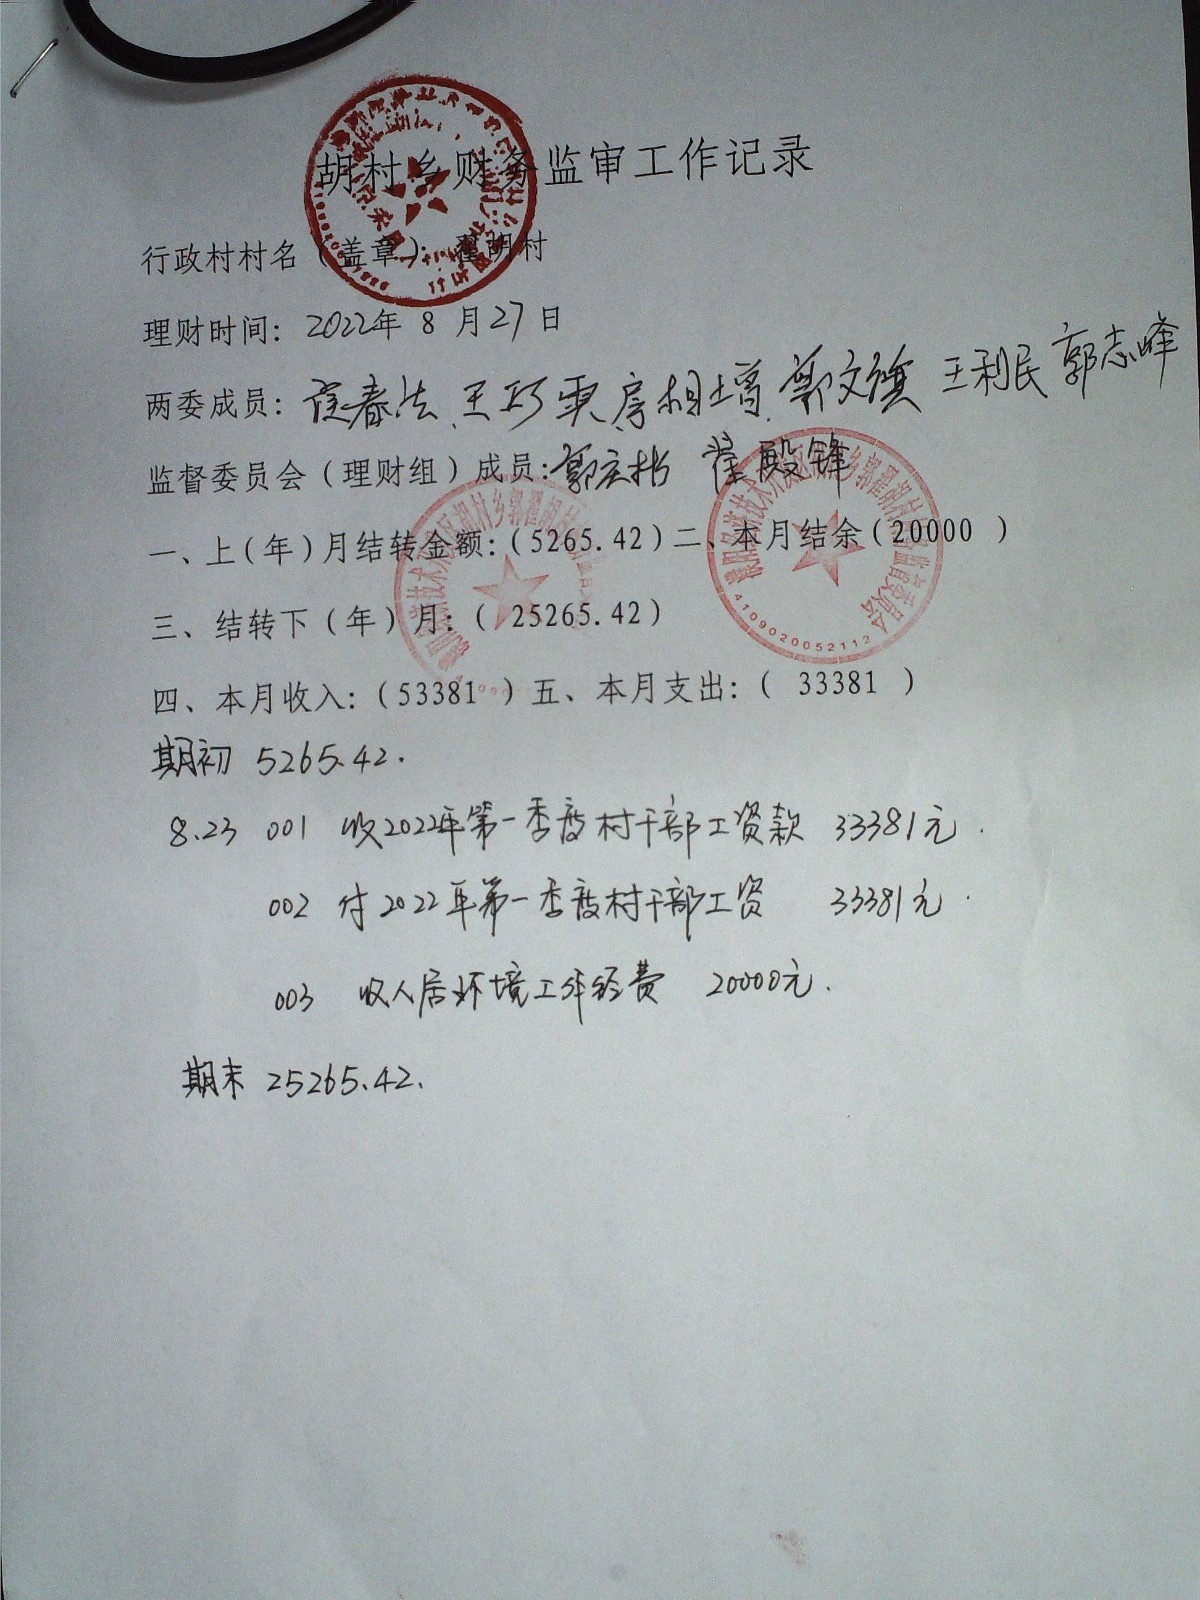 胡村乡财务监审工作记录
行政村村名（盖章）：翟胡村
理财时间：2022年 8 月27日
两委成员：春法 王巧 房相增 郭文旗 王利民 郭志峰
监督委员会（理财组）成员：郭 翟殿锋
一、上（年）月结转金额：（5265.42）二、本月结余（20000 ）
三、结转下（年）月：（ 25265.42）
四、本月收入：（53381 ）五、本月支出：（ 33381 ）
期初 5265.42.
8.23 001 收2022年第一季度村干部工资款 33381元.
002 付2022年第一季度村干部工资 33381元.
003 收人居环境工作经费 20000元.
期末 25265.42.
4109020052112